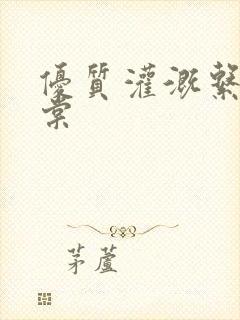 優質灌溉繫
棠
茅蘆